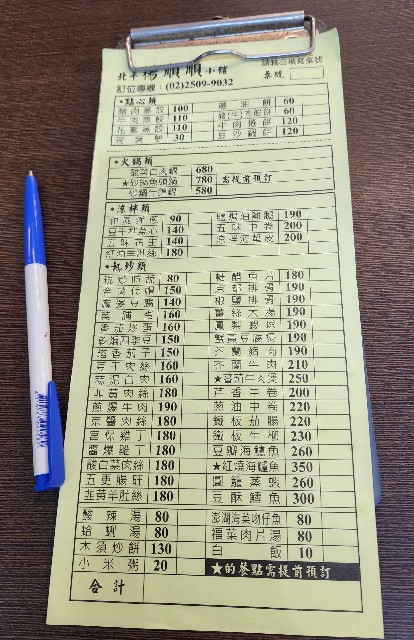 請務必填寫桌號
北平 楊順順 小館 桌號
訂位專線：(02)2509-9032
•點心類
豬肉蒸餃 100 蔥油餅 60
牛肉蒸餃 110 豬(牛)肉餡餅 60
花素蒸餃 110 牛肉捲餅 120
30 豆沙鍋餅 120
•火鍋類
酸菜白肉鍋 680
★砂鍋魚頭 780 需提前預訂
砂鍋牛雜鍋 580
•涼拌類
90 190
豆干拌菜心 140 五味中卷 200
五味花生 140 涼拌海蜇皮 200
紅油羊肚絲 180
•熱炒類
80 魚片 180
150 京都排骨 190
麻婆豆腐 140 椒鹽排骨 190
160 薑絲大腸 190
番茄炒蛋 160 鳳梨蝦球 190
乾煸四季豆 150 鮮黃豆腐煲 190
塔香茄子 150 芥蘭豬肉 190
豆干肉絲 160 芥蘭牛肉 210
蒜泥白肉 160 ★番茄牛肉煲 250
韭黃肉絲 180 芹香中卷 200
蔥爆牛肉 190 蔥油中卷 220
京醬肉絲 180 鐵板茄腸 220
宮保雞丁 180 鐵板牛柳 230
醬爆雞丁 180 豆瓣海鱺魚 260
酸白菜肉絲 180 ★紅燒海鱺魚 350
五更腸旺 180 圓籠蒸蝦 260
韭黃羊肚絲 180 豆酥鱈魚 300
酸辣湯 80 澎湖海菜吻仔魚 80
蛤蜊湯 80 福菜肉片湯 80
木須炒餅 130 白飯 10
小米粥 20 ★的餐點需提前預訂
合計